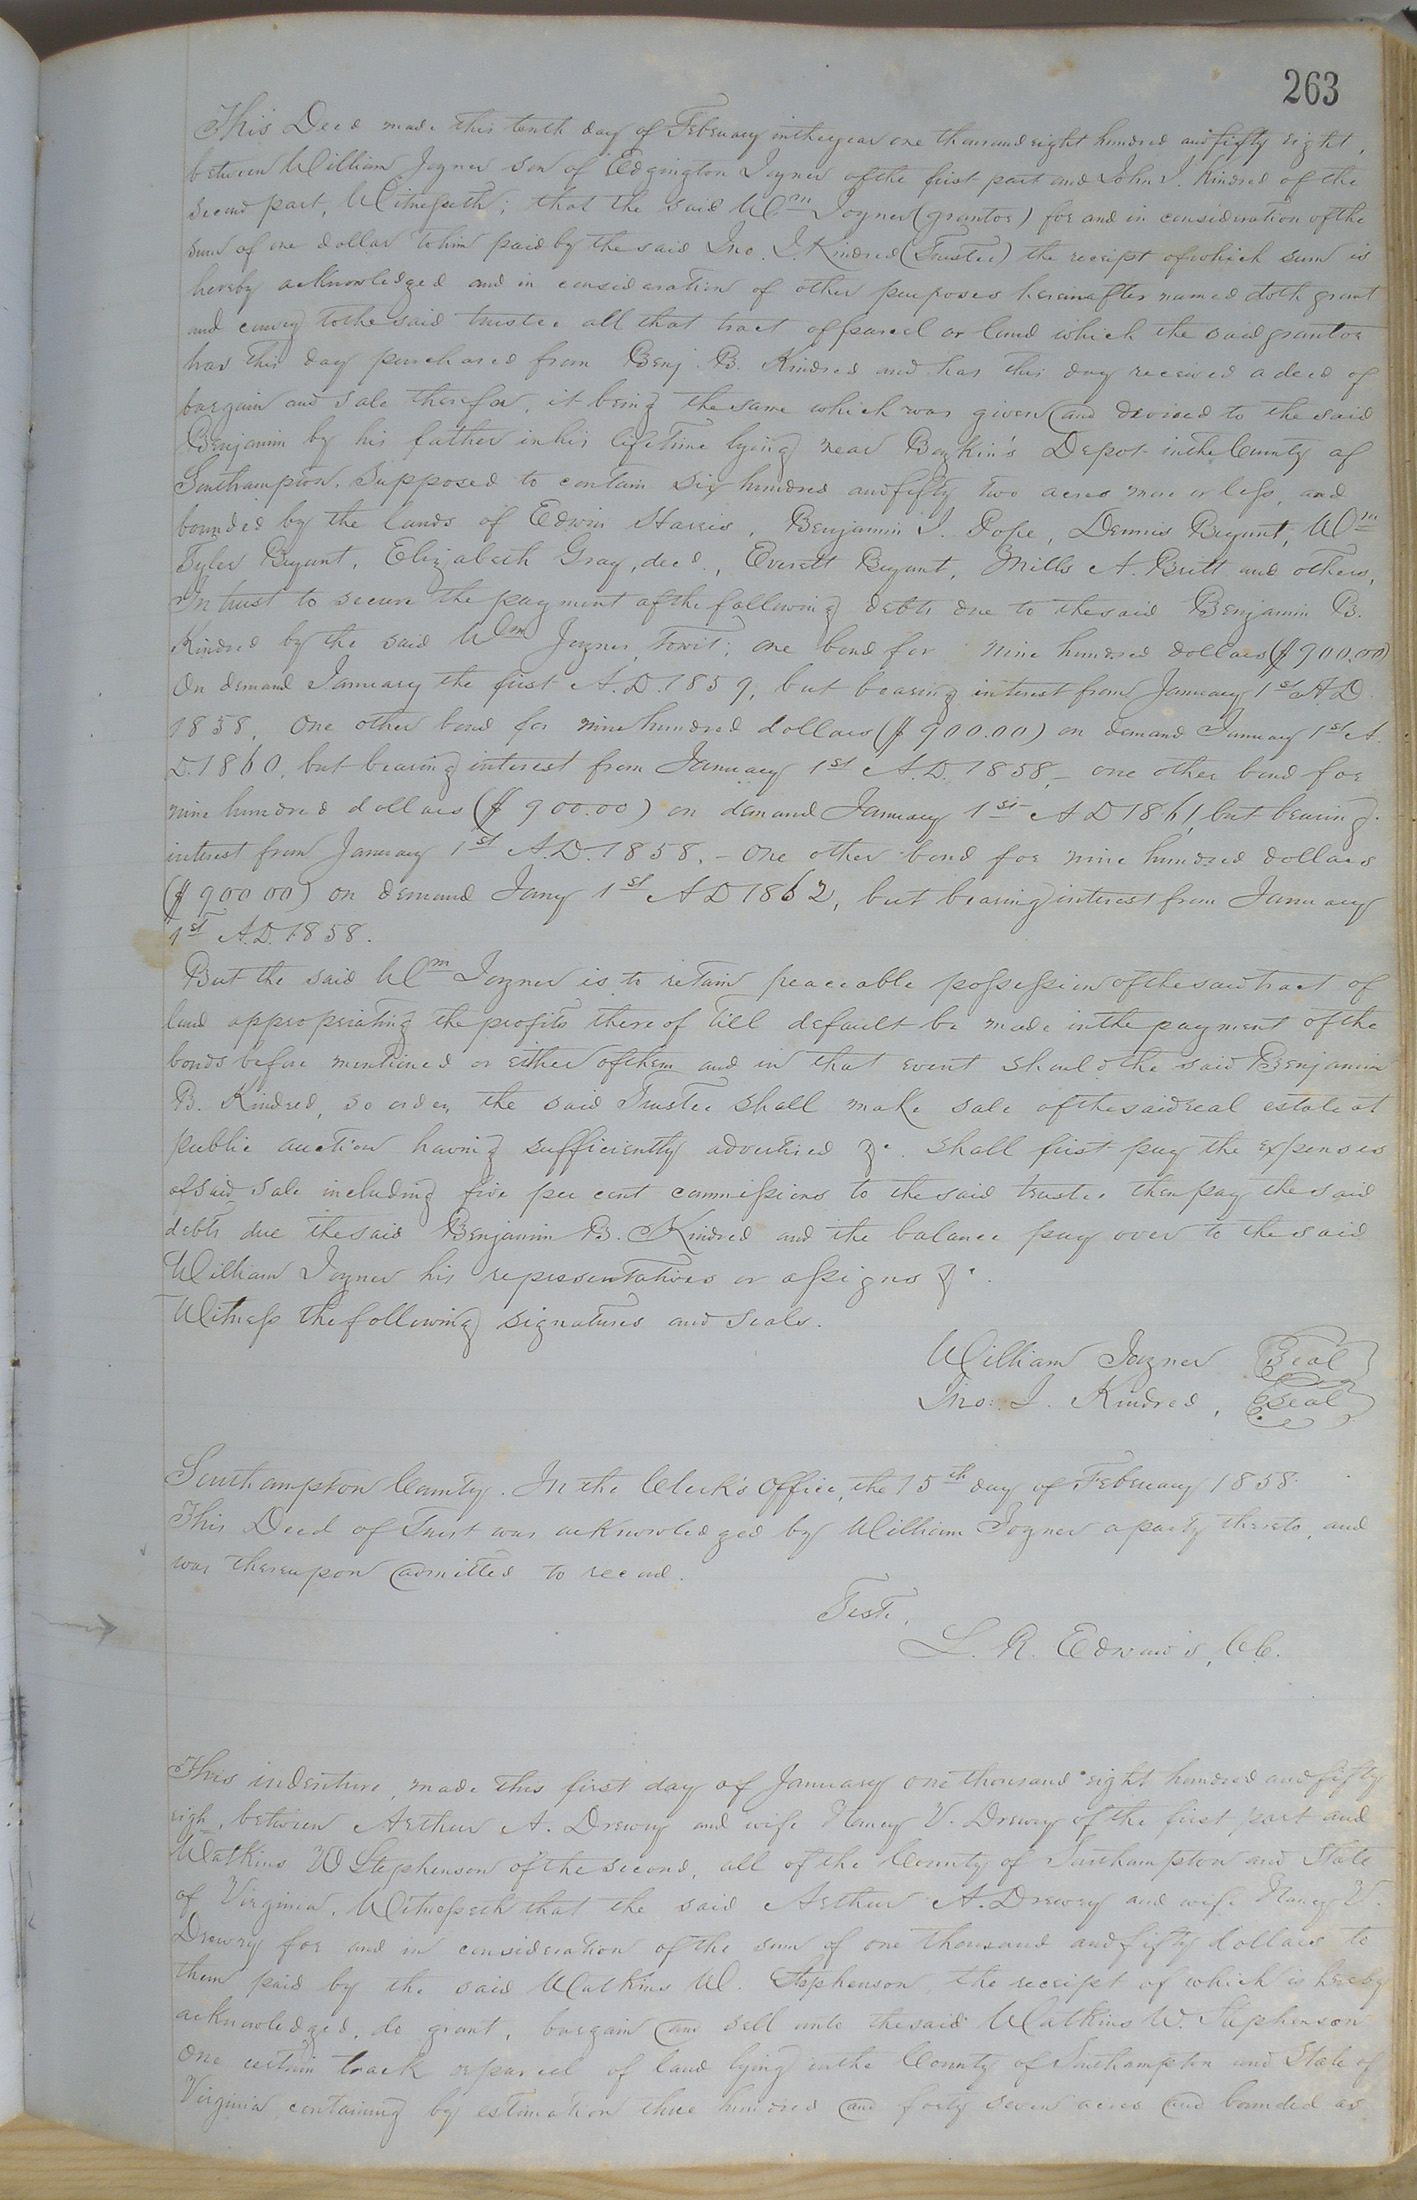 263
This Deed made this tenth day of February in the year one thousand eight hundred and fifty eight,
between William Joyner son of Edgington Joyner of the first part and John J. Kindred of the
second part, Witnesseth; that the said Wm Joyner (grantor) for and in consideration of the
sum of one dollar to him paid by the said Jno. J. Kindred (Trustee) the receipt of which sum is
hereby acknowledged and in consideration of other purposes hereinafter named doth grant
and convey to the said trustee all that tract of parcel or land which the said grantor
has this day purchased from Benj. B. Kindred and has this day received a deed of
bargain and sale therefor, it being the same which was given and devised to the said
Benjamin by his father in his life time lying near Boykin's Depot in the County of
Southampton, supposed to contain six hundred and fifty two acres more or less, and
bounded by the lands of Edwin Harris, Benjamin J. Pope, Dennis Bryant, Wm
Tyler Bryant, Elizabeth Gray, decd., Everett Bryant, Mills A. Britt and others,
In trust to secure the payment of the following debts due to the said Benjamin B.
Kindred by the said Wm Joyner, towit; one bond for nine hundred dollars ($900.00)
On demand January the first A.D. 1859, but bearing interest from January 1st A.D.
1858, One other bond for nine hundred dollars ($900.00) on demand January 1st A.
D. 1860, but bearing interest from January 1st A.D. 1858, – one other bond for
nine hundred dollars ($900.00) on demand January 1st A D 1861, but bearing
interest from January 1st A.D. 1858. – One other bond for nine hundred dollars
($900 00) on demand Jany 1st A D 1862, but bearing interest from January
1st A.D. 1858.
But the said Wm Joyner is to retain peaceable possession of the said tract of
land appropriating the profits thereof till default be made in the payment of the
bonds before mentioned or either of them and in that event should the said Benjamin
B. Kindred, so order, the said Trustee shall make sale of the said real estate at
public auction having sufficiently advertised &c. shall first pay the expenses
of said sale including five per cent commissions to the said trustee then pay the said
debts due the said Benjamin B. Kindred and the balance pay over to the said
William Joyner his representatives or assigns &c.
Witness the following signatures and seals.
William Joyner Seal
Jno. J. Kindred, Seal
Southampton County. In the Clerk's Office, the 15th day of February 1858.
This Deed of Trust was acknowledged by William Joyner a party thereto, and
was thereupon admitted to record.
Teste,
L. R. Edwards, CC.
This indenture, made this first day of January one thousand eight hundred and fifty
eigh, between Arthur A. Drewry and wife Nancy V. Drewry of the first part and
Watkins W Stephenson of the second, all of the County of Southampton and State
of Virginia, Witnesseth that the said Arthur A. Drewry and wife Nancy V.
Drewry for and in consideration of the sum of one thousand and fifty dollars to
them paid by the said Watkins W. Stephenson, the receipt of which is hereby
acknowledged, do grant, bargain and sell unto the said Watkins W. Stephenson
One certain track or parcel of land lying in the County of Southampton and State of
Virginia containing by estimation three hundred and forty seven acres and bounded as